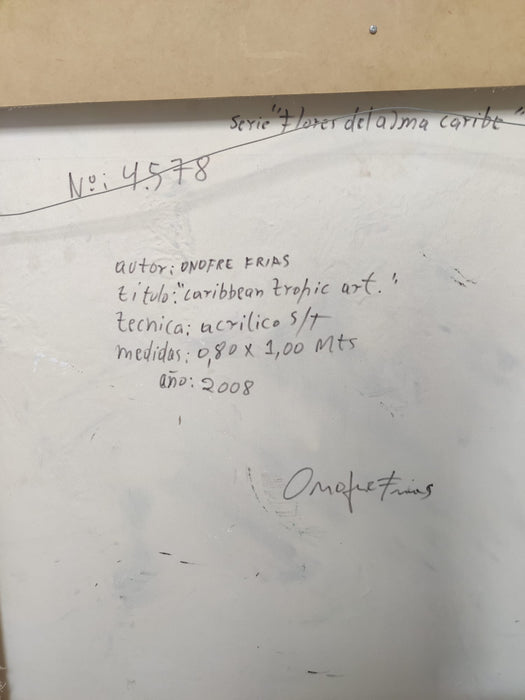 serie "Flores del alma caribe"
Nº: 4.578
autor: ONOFRE FRIAS
titulo: "caribbean tropic art."
tecnica: acrilico s/t
medidas: 0,80 x 1,00 Mts
año: 2008
Onofre Frias